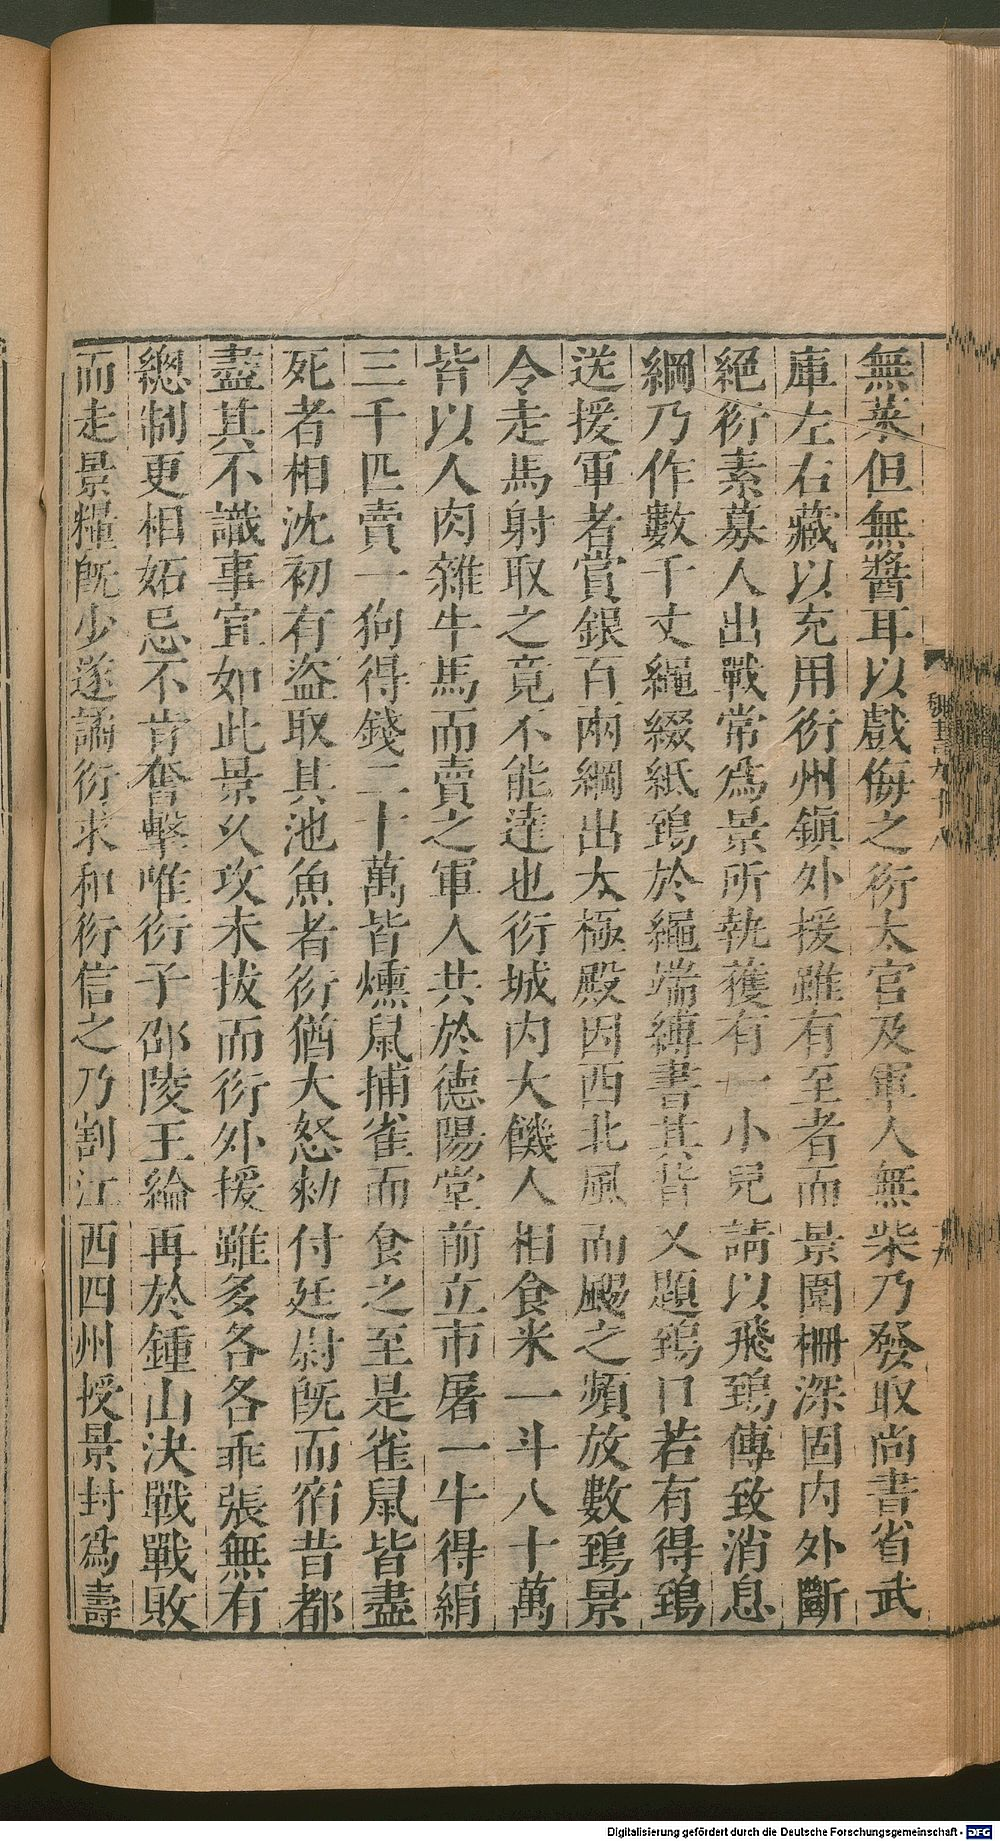 無菜但無醬耳以戲侮之衍太官及軍人無柴乃發取尚書省武
庫左右藏以充用衍州鎮外援雖有至者而景圍柵深固內外斷
絕衍素募人出戰常爲景所執獲有一小兒請以飛鵄傳致消息
綱乃作數千丈繩綴紙鵄於繩端縛書其背又題鵄口若有得鵄
送援軍者賞銀百兩綱出太極殿因西北風而颺之頻放數鵄景
令走馬射取之竟不能達也衍城內大饑人相食米一斗八十萬
皆以人肉雜牛馬而賣之軍人共於德陽堂前立市屠一牛得絹
三千匹賣一狗得錢二十萬皆燻鼠捕雀而食之至是雀鼠皆盡
死者相沈初有盜取其池魚者衍猶大怒勑付廷尉旣而宿昔都
盡其不識事宜如此景久攻未拔而衍外援雖多各各乖張無有
總制更相妬忌不肯奮擊唯衍子邵陵王綸再於鍾山決戰戰敗
而走景糧旣少遂譎衍求和衍信之乃割江西四州授景封爲壽
Digitalisierung gefördert durch die Deutsche Forschungsgemeinschaft - DFG